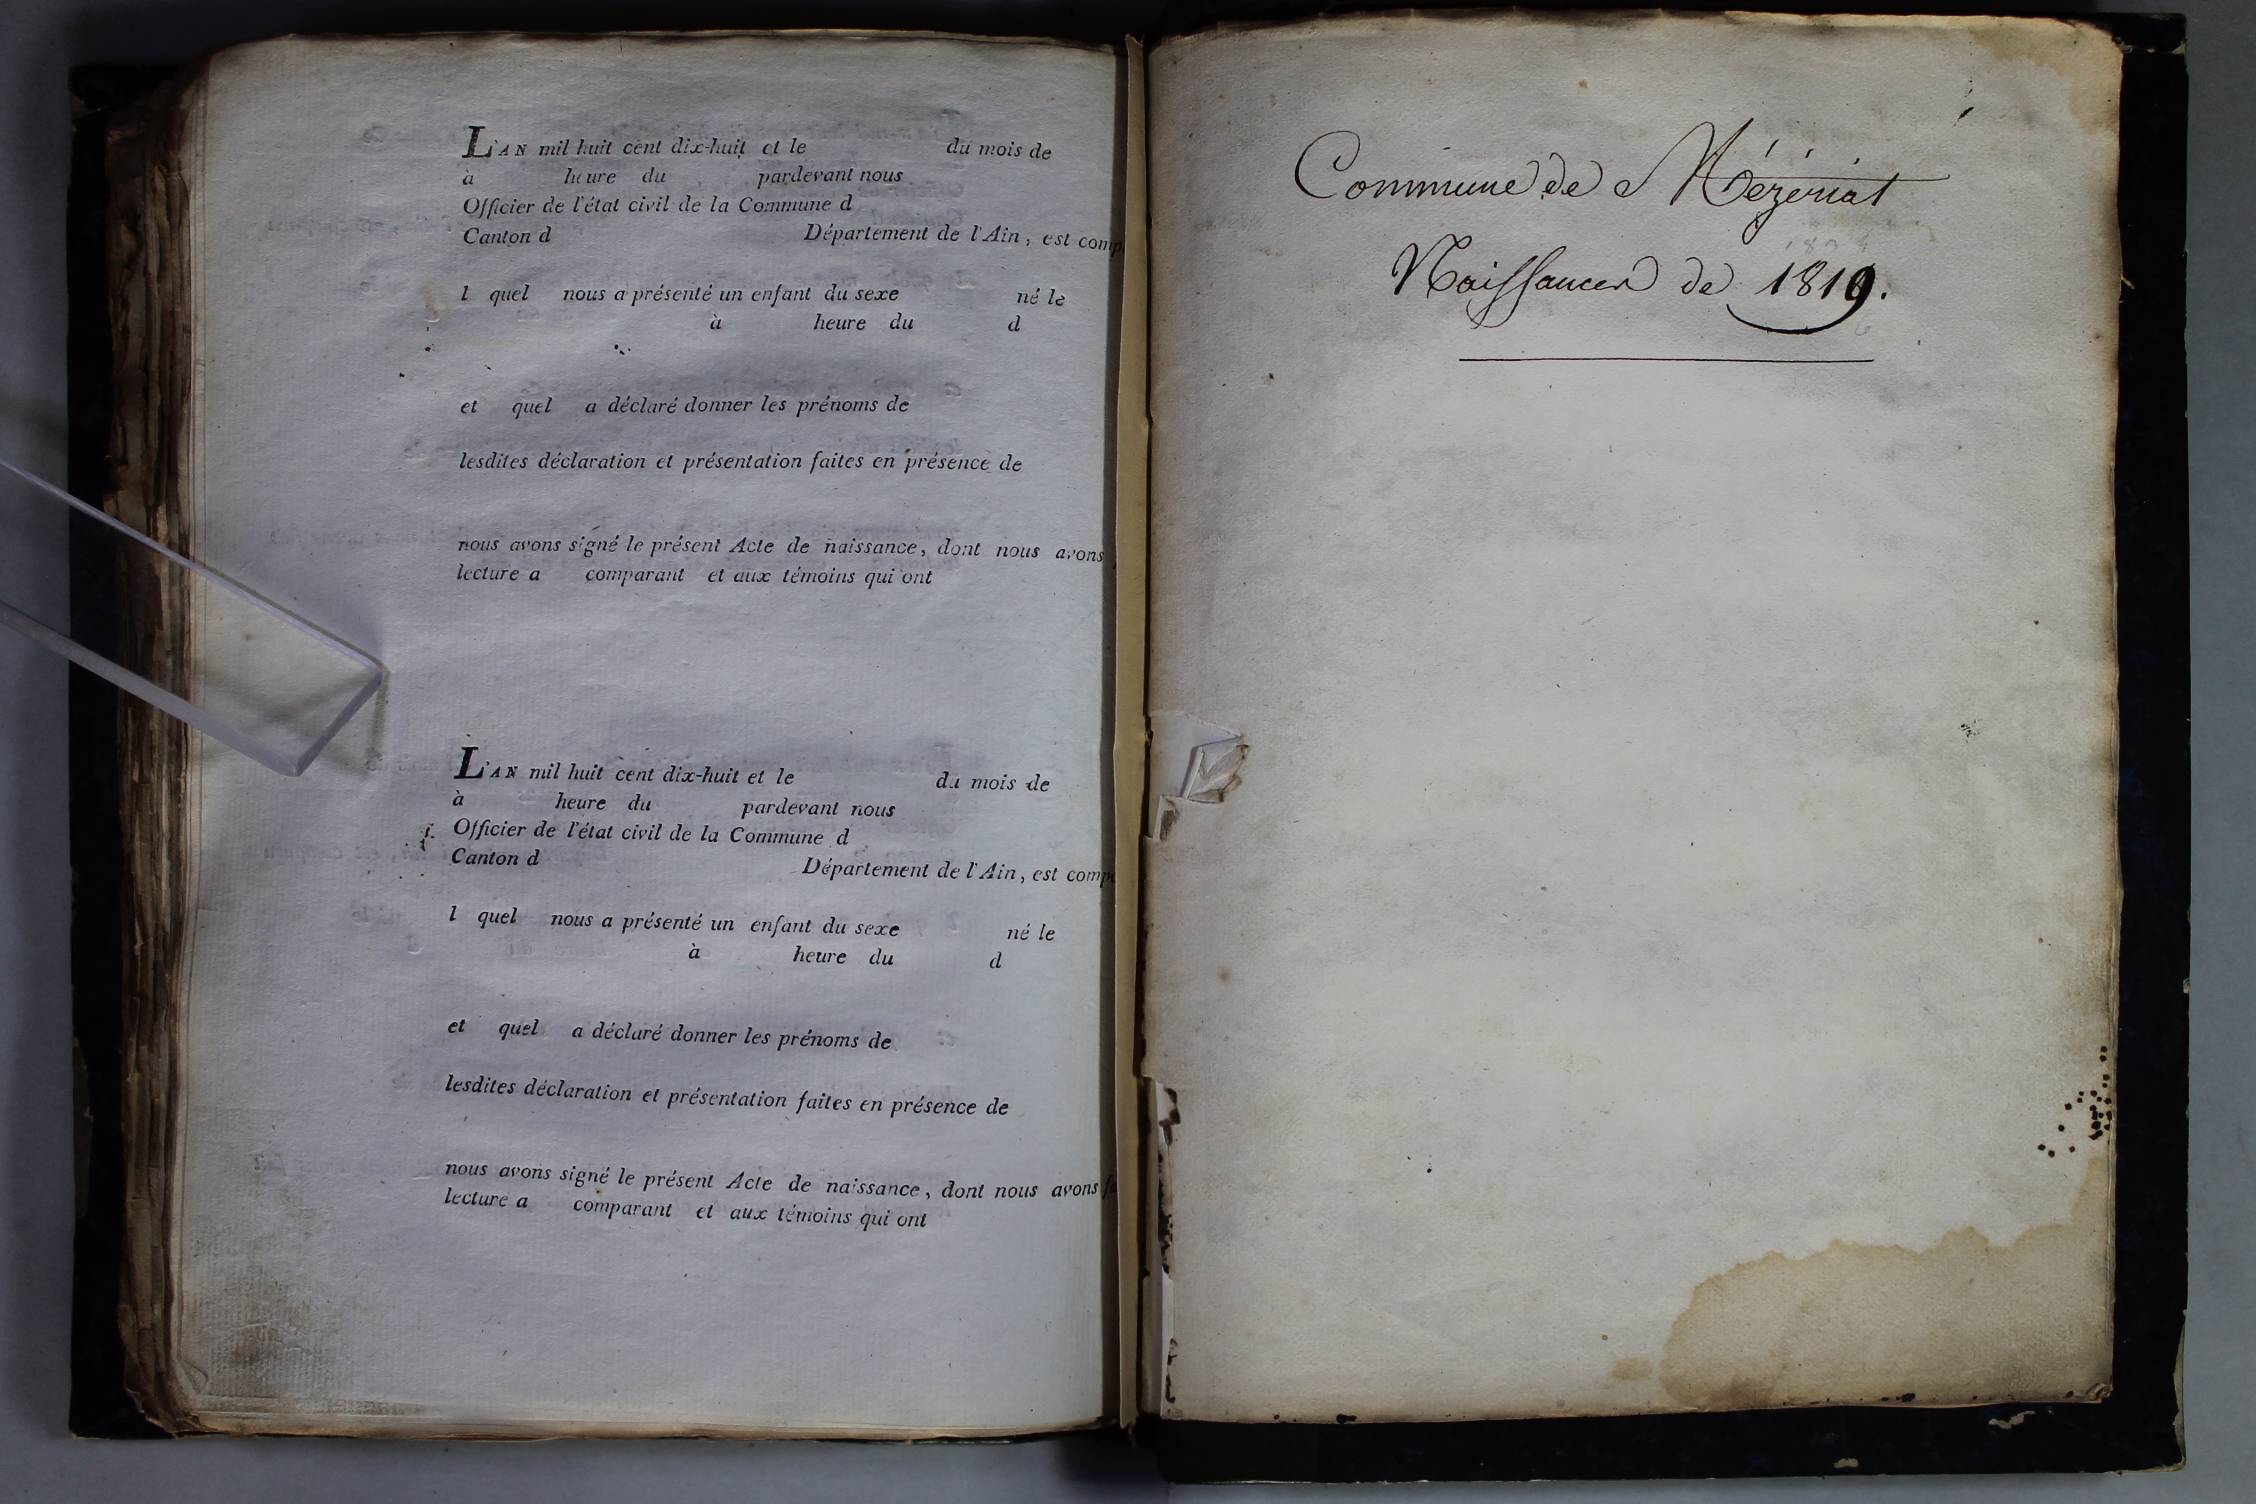 L'AN mil huit cent dix-huit et le du mois de
à heure du pardevant nous
Officier de l'état civil de la Commune d
Canton d Département de l'Ain, est comp
l quel nous a présenté un enfant du sexe né le
à heure du d
et quel a déclaré donner les prénoms de
lesdites déclaration et présentation faites en présence de
nous avons signé le présent Acte de naissance, dont nous avons
lecture a comparant et aux témoins qui ont
L'AN mil huit cent dix-huit et le du mois de
à heure du pardevant nous
Officier de l'état civil de la Commune d
Canton d Département de l'Ain, est comp
l quel nous a présenté un enfant du sexe né le
à heure du d
et quel a déclaré donner les prénoms de
lesdites déclaration et présentation faites en présence de
nous avons signé le présent Acte de naissance, dont nous avons f
lecture a comparant et aux témoins qui ont
Commune de Mézériat
Naissances de 1819.